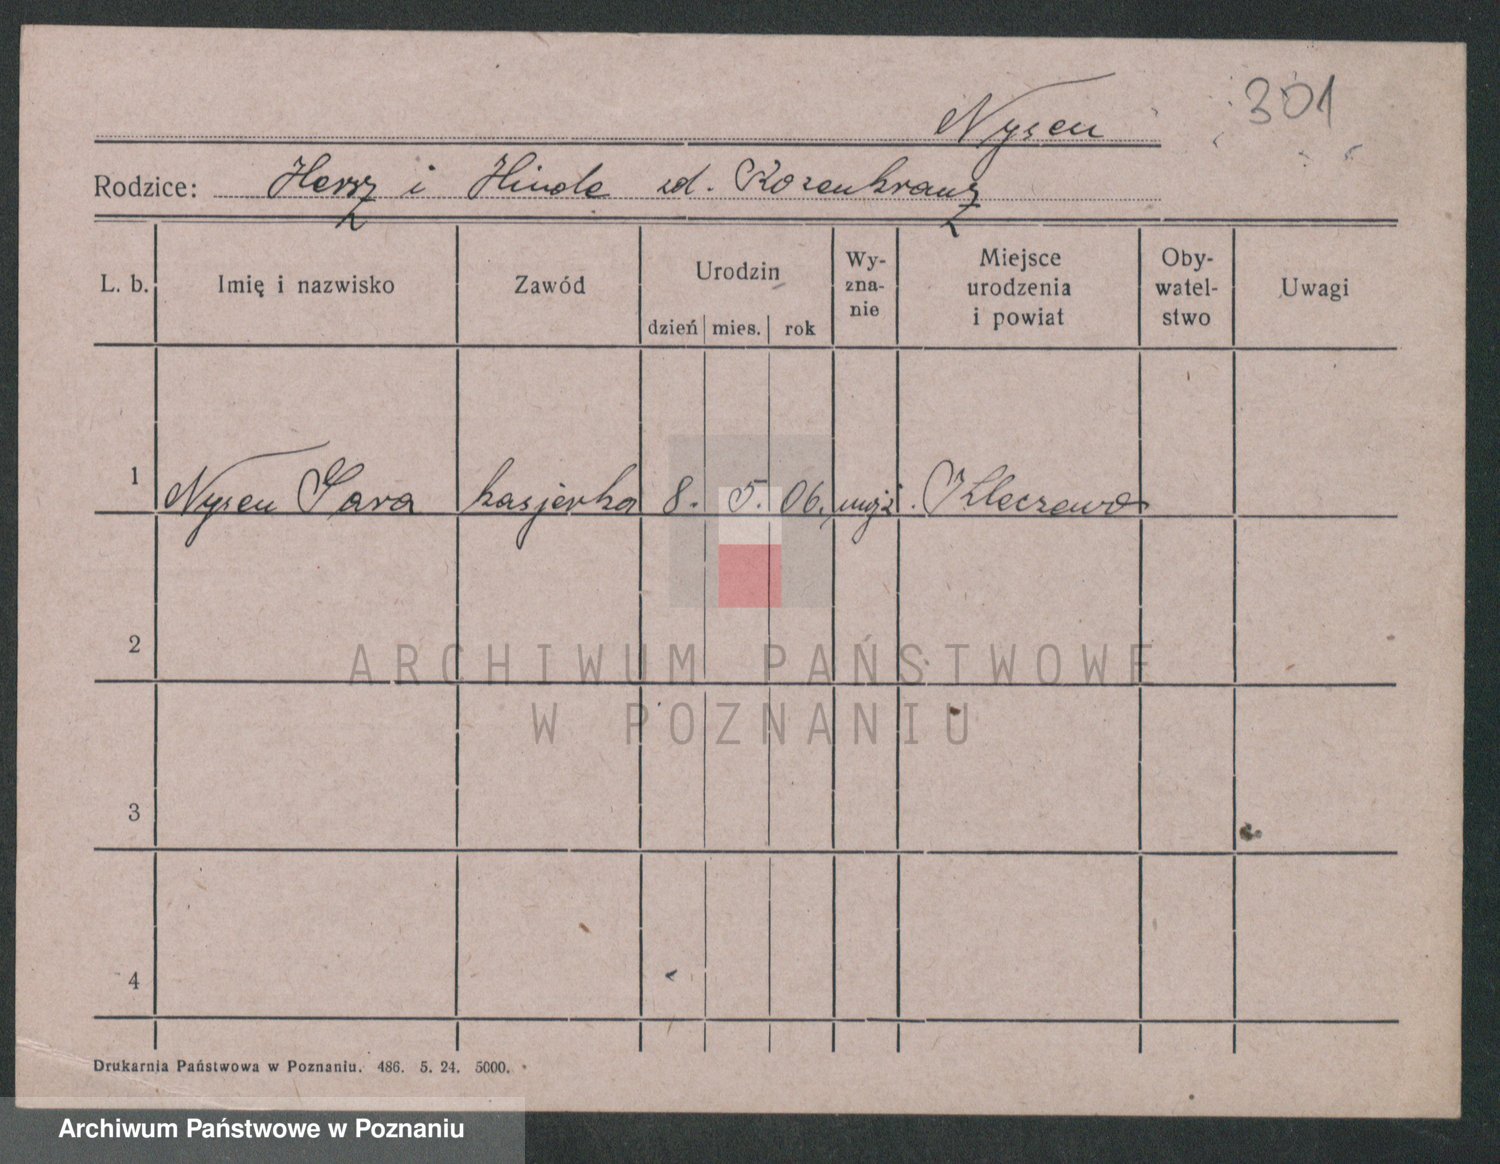 Nysen
301
Rodzice: Hersz i Hinda zd. Rozenkranz
L. b. Imię i nazwisko Zawód Urodzin dzień mies. rok Wy-zna-nie Miejsce urodzenia i powiat Oby-watel-stwo Uwagi
1 Nysen Sara kasjerka 8. 5. 06. mojż. Kleczewo
2
ARCHIWUM PAŃSTWOWE
W POZNANIU
3
4
Drukarnia Państwowa w Poznaniu. 486. 5. 24. 5000.
Archiwum Państwowe w Poznaniu